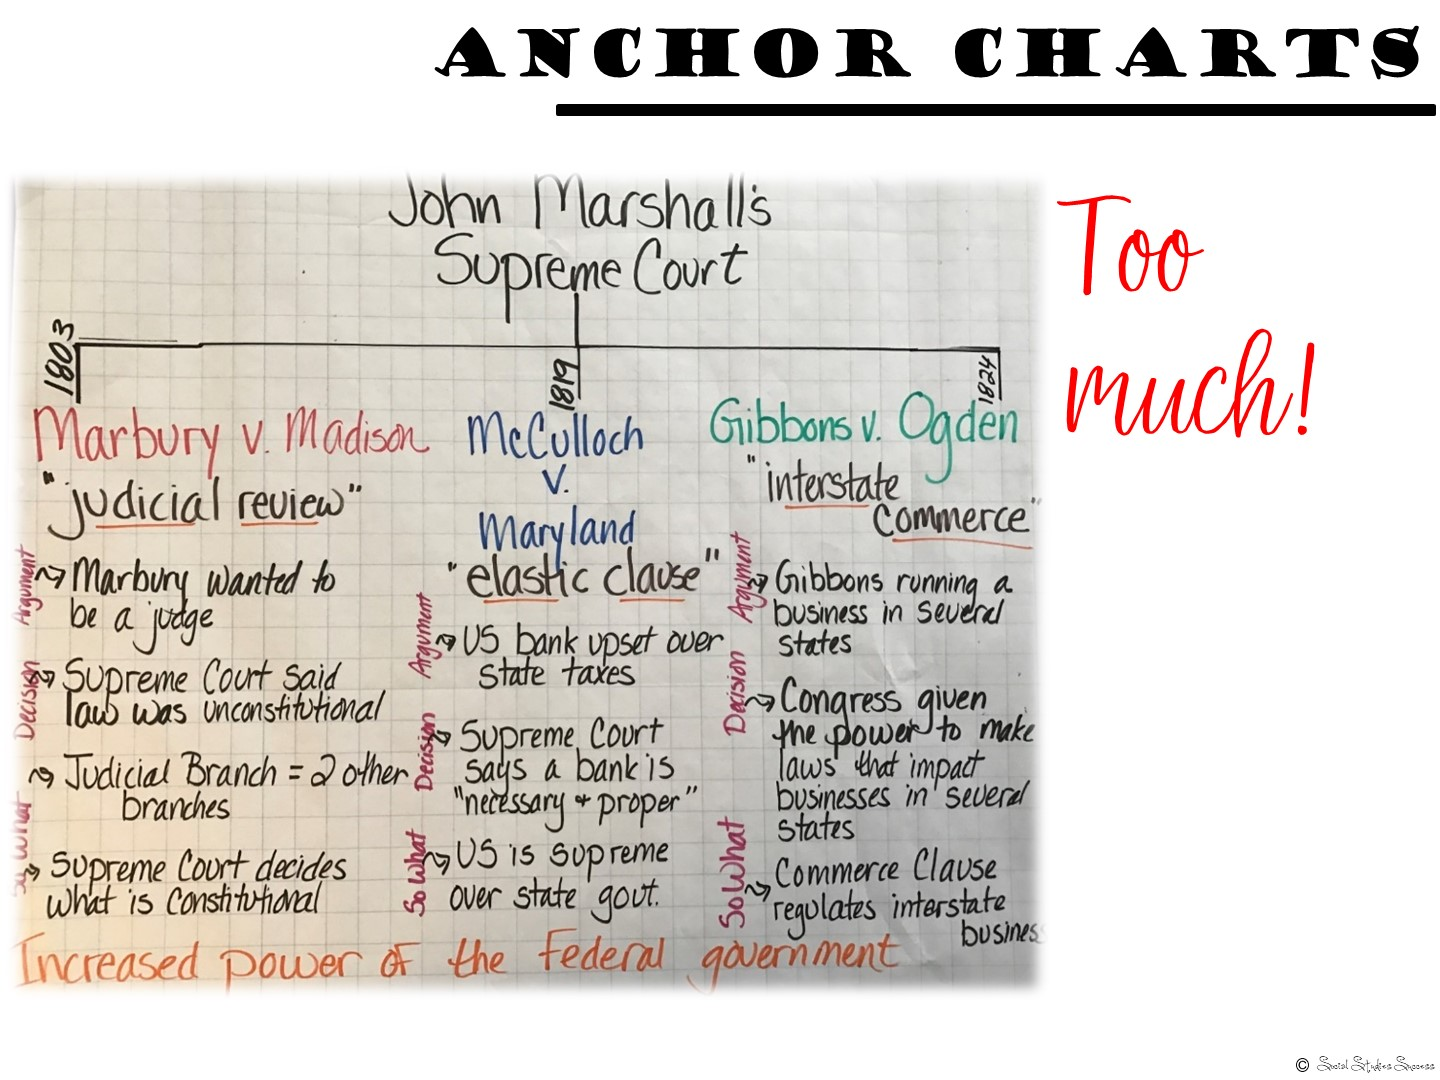 ANCHOR CHARTS
Too
much!
John Marshall's
Supreme Court
1803
1819
1824
Marbury v. Madison
"judicial review"
Argument
Marbury wanted to
be a judge
Decision
Supreme Court said
law was unconstitutional
So What
Judicial Branch = 2 other
branches
Supreme Court decides
what is Constitutional
McCulloch
v.
Maryland
"elastic clause"
Argument
US bank upset over
state taxes
Decision
Supreme Court
says a bank is
"necessary + proper"
So What
US is supreme
over state govt.
Gibbons v. Ogden
"interstate
Commerce"
Argument
Gibbons running a
business in several
states
Decision
Congress given
the power to make
laws that impact
businesses in several
states
So What
Commerce Clause
regulates interstate
business
Increased power of the Federal government
© Social Studies Success